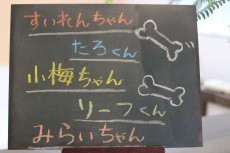 すいれんちゃん
たろくん
小梅ちゃん
リーフくん
みらいちゃん